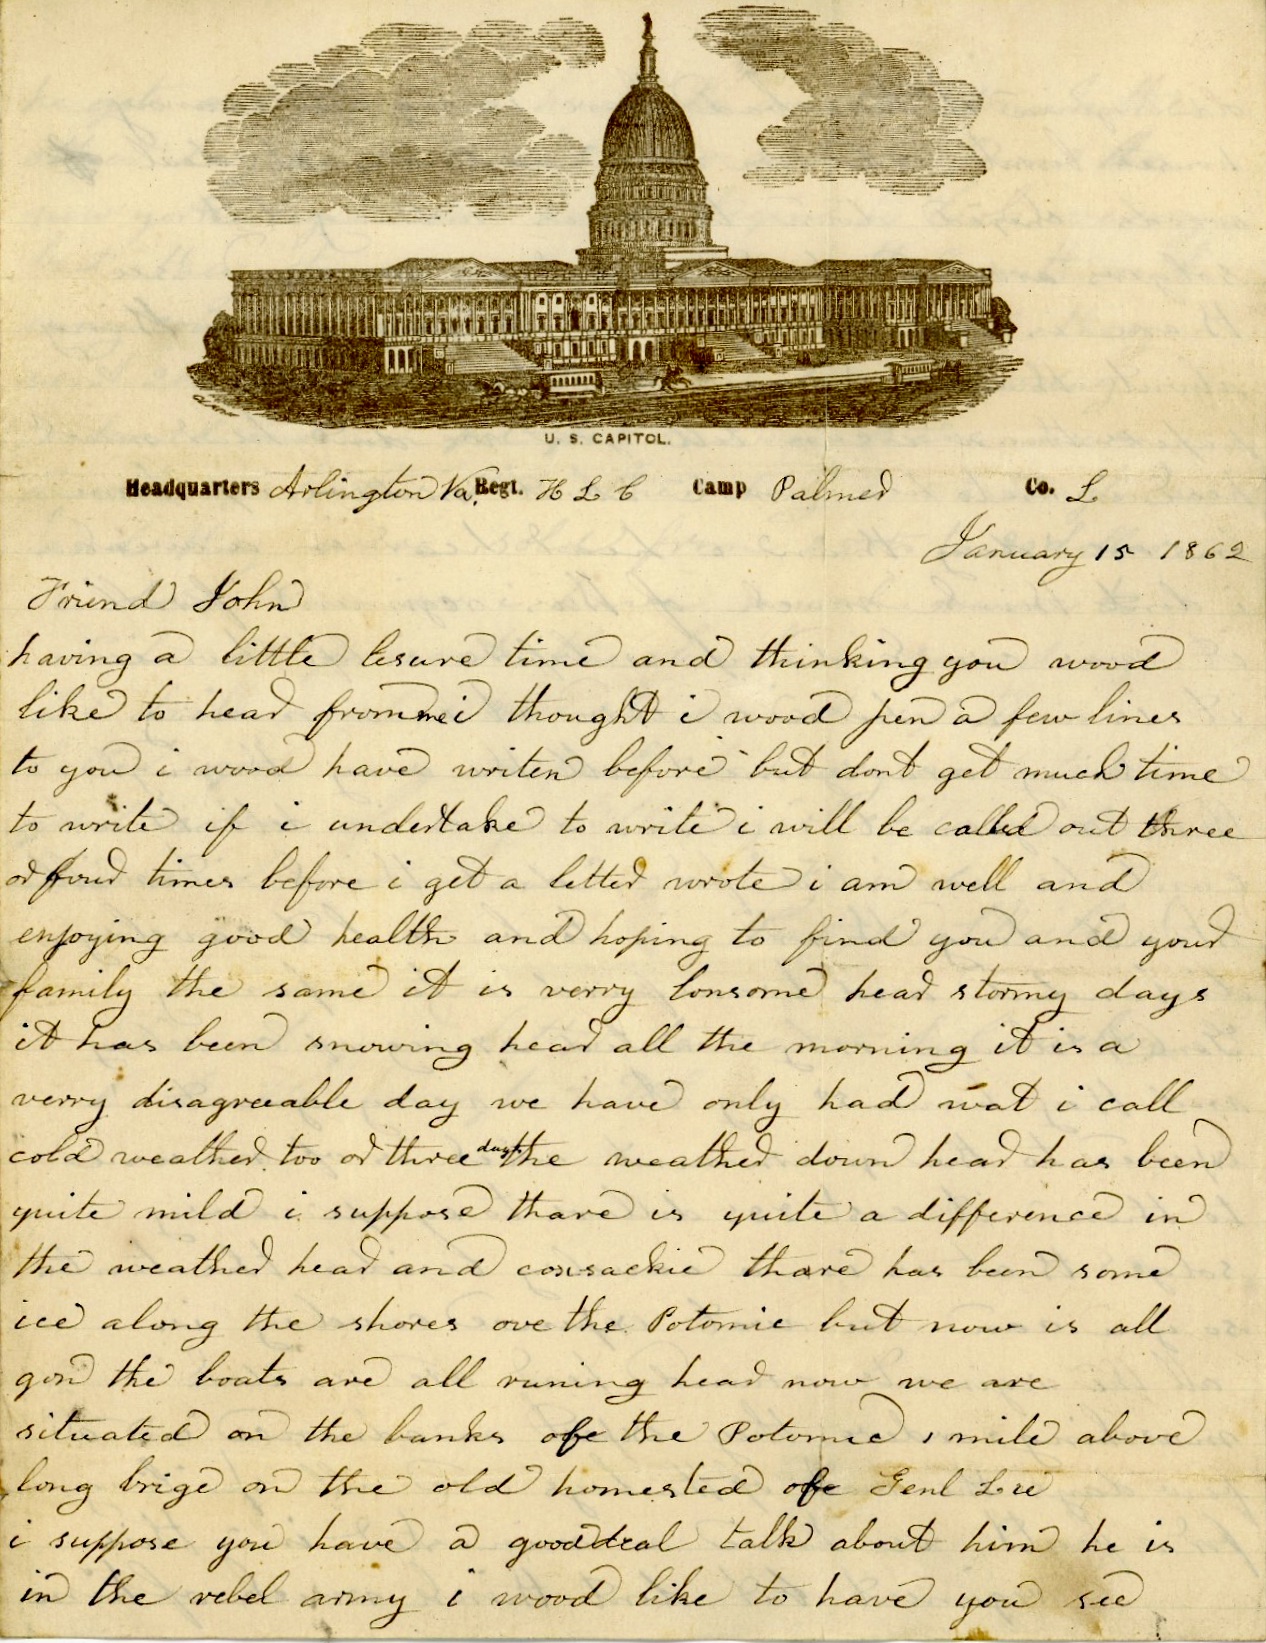 U. S. CAPITOL.
Headquarters Arlington Va. Regt. H L C Camp Palmer Co. L
January 15 1862
Friend John
having a little lesure time and thinking you wood
like to hear from me i thought i wood pen a few lines
to you i wood have writen before but dont get much time
to write if i undertake to write i will be called out three
or four times before i get a letter wrote i am well and
enjoying good health and hoping to find you and your
family the same it is verry lonsome hear stormy days
it has been snowing hear all the morning it is a
verry disagreeable day we have only had wat i call
cold weather too or three days the weather down hear has been
quite mild i suppose thare is quite a difference in
the weather hear and coxsackie thare has been some
ice along the shores ove the Potomic but now is all
gon the boats are all runing hear now we are
situated on the banks ofe the Potomic 1 mile above
long brige on the old homested ofe Genl Lee
i suppose you have a good deal talk about him he is
in the rebel army i wood like to have you see